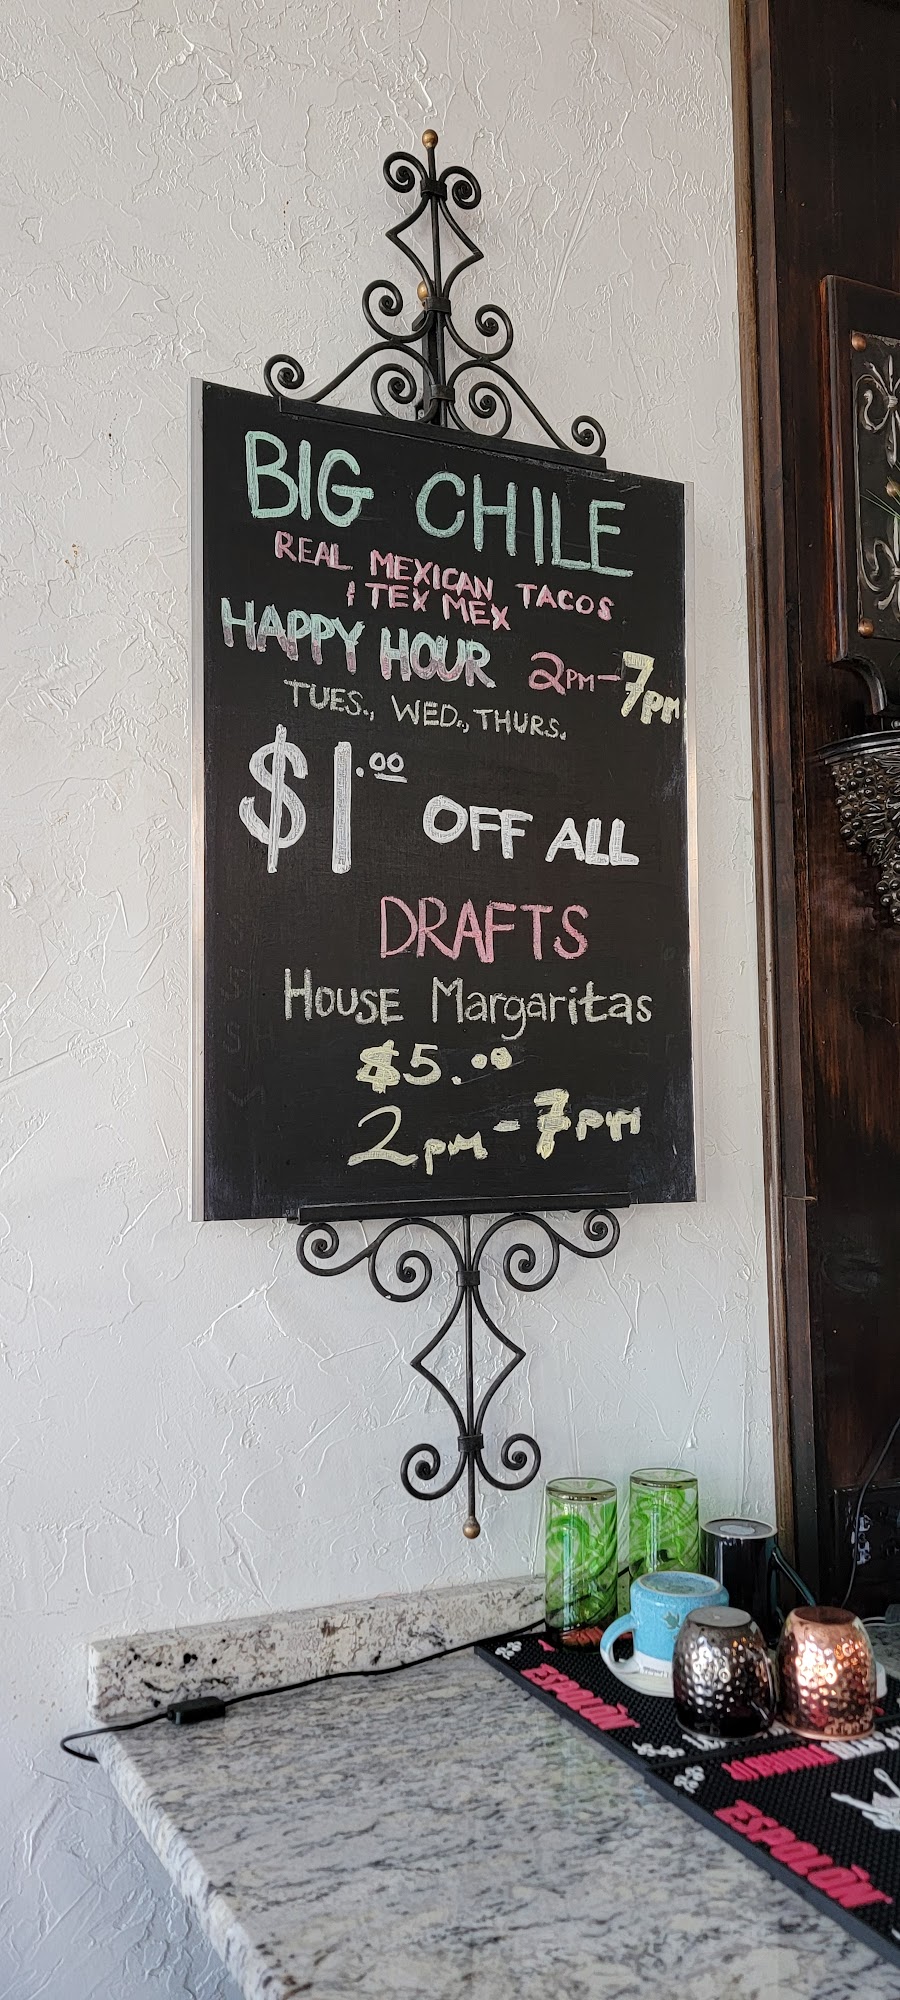 BIG CHILE
REAL MEXICAN TACOS
& TEX MEX
HAPPY HOUR 2PM-7pm
TUES., WED., THURS.
$1.00 OFF ALL
DRAFTS
House Margaritas
$5.00
2pm-7pm
ESPOLÒN
ESPOLÒN